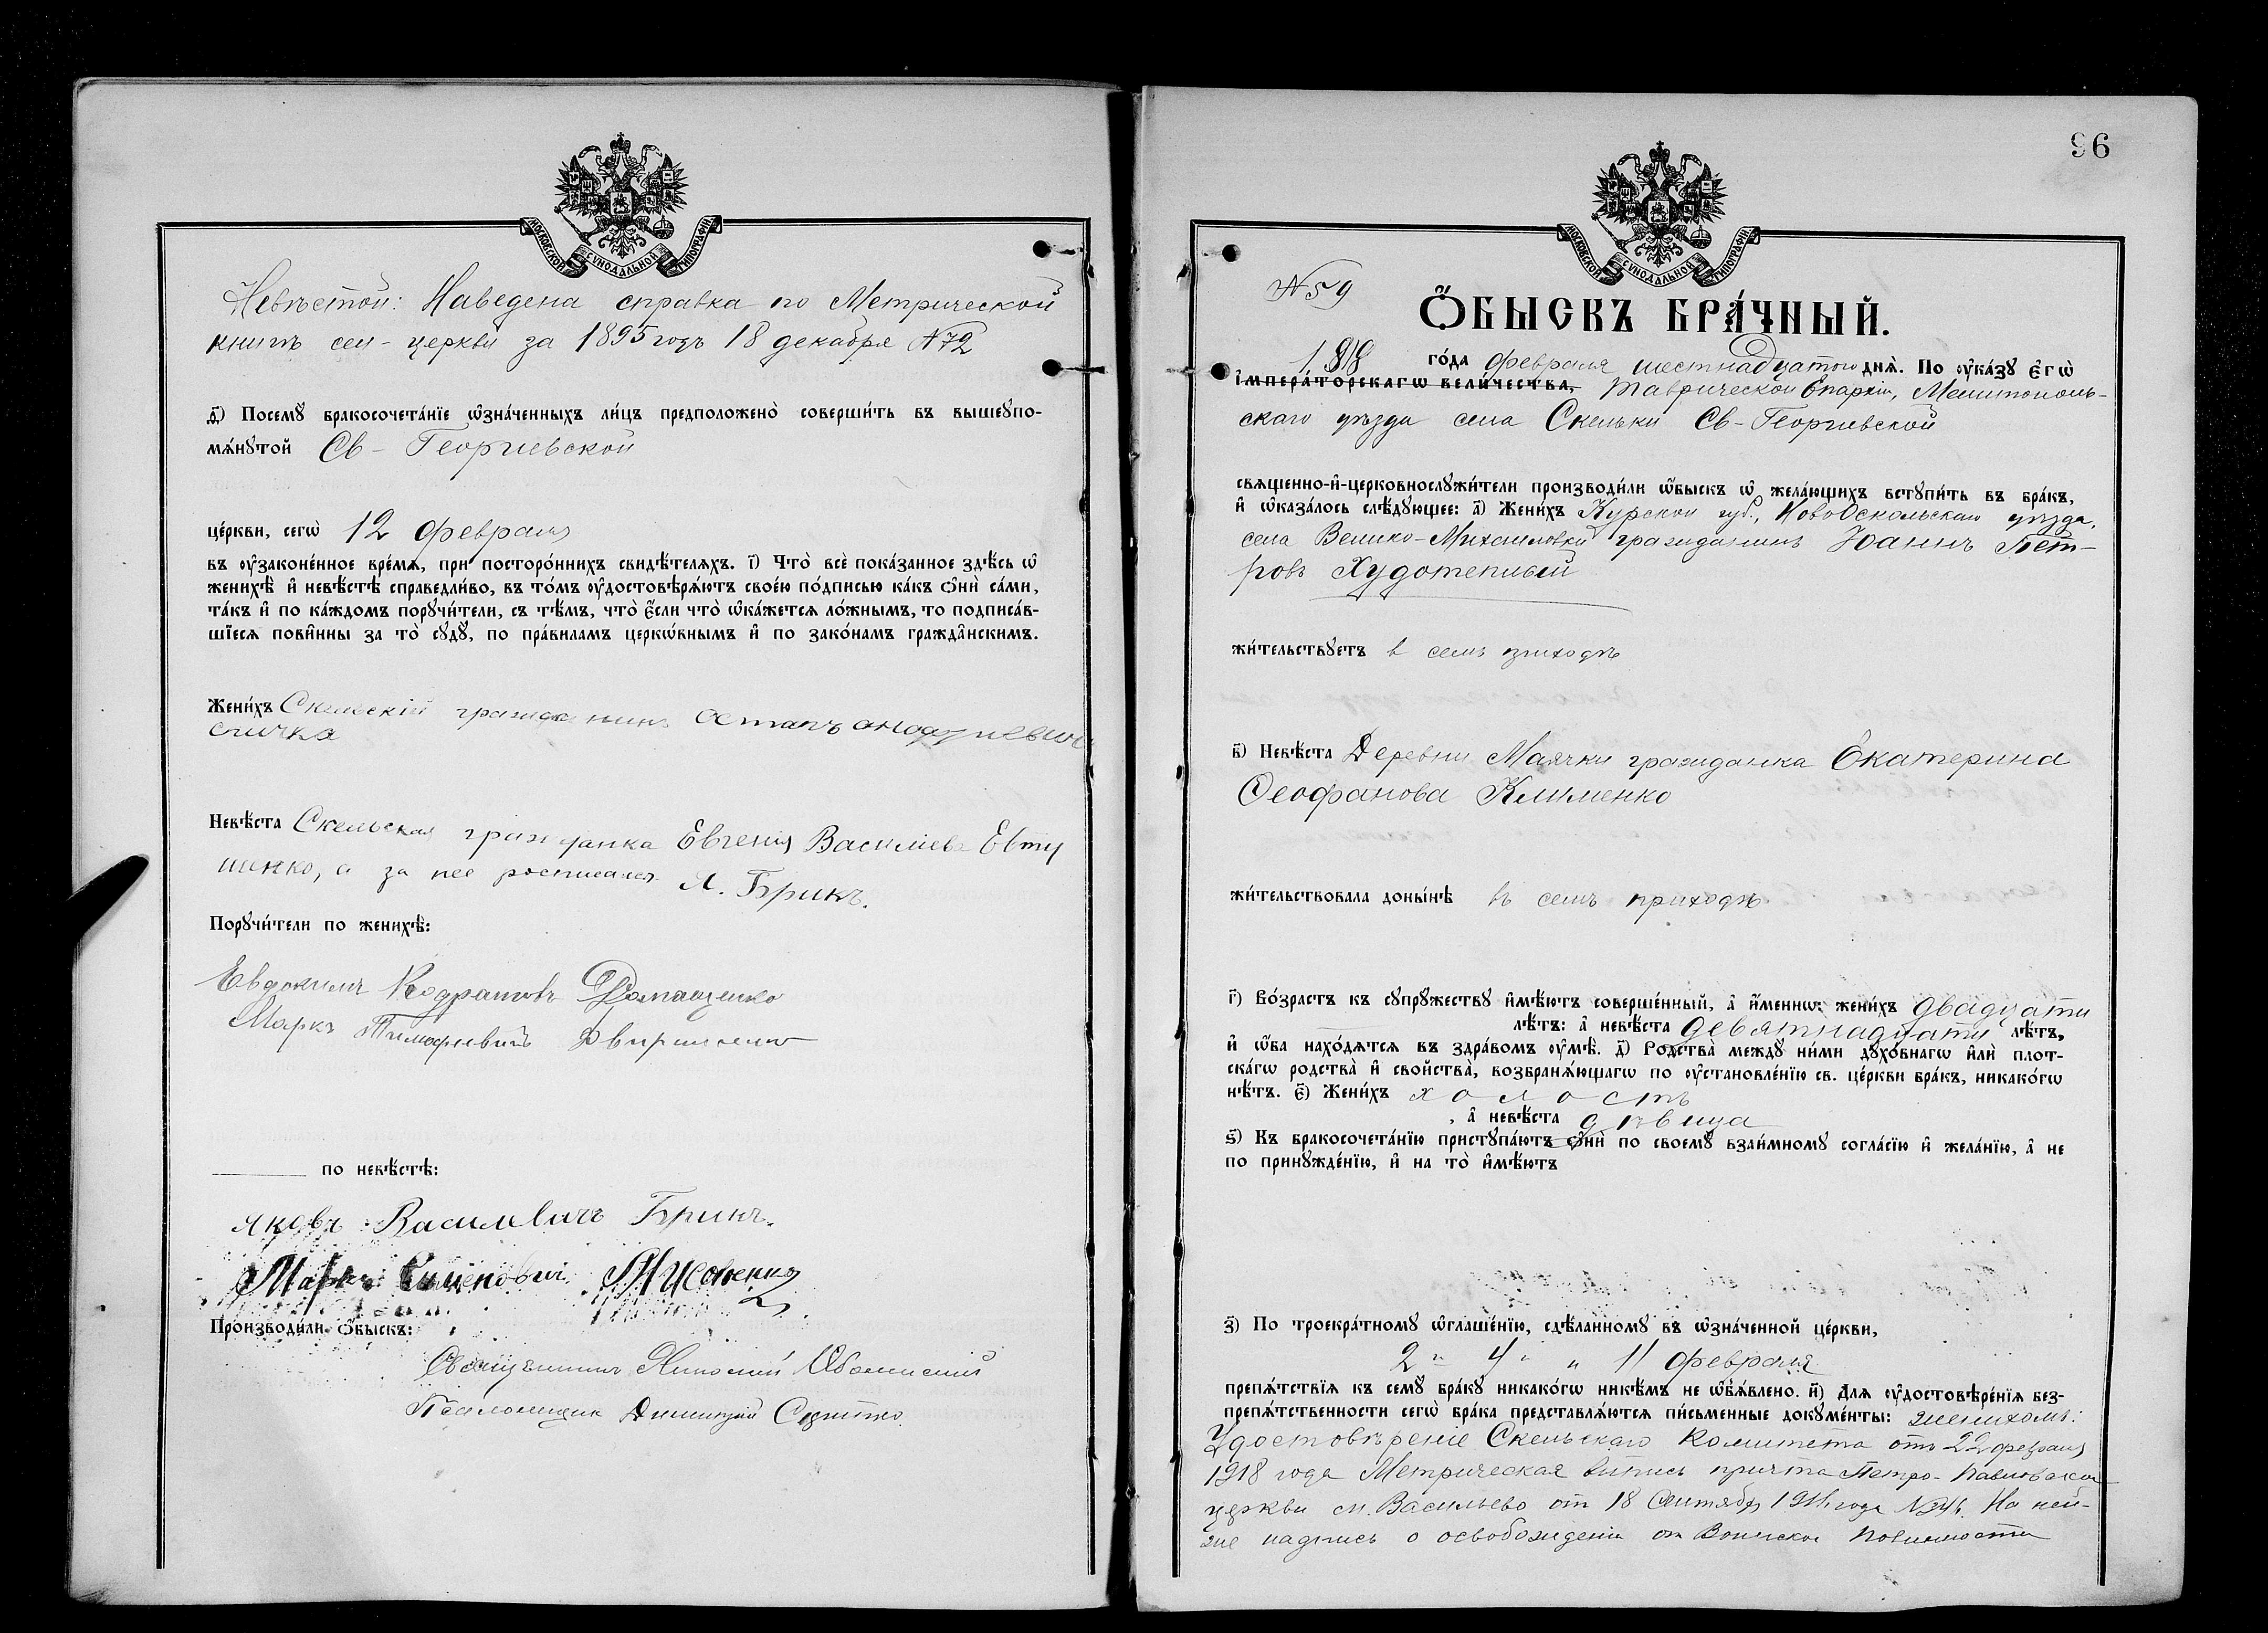 МОСКОВСКОЙ СѴНОДАЛЬНОЙ ТИПОГРАФІИ
Невѣстой: Наведена справка по Метрической
книгѣ сей-церкви за 1895 годъ 18 декабря №72
д҃і) Посемꙋ бракосочета́нїе ѡзна́ченныхъ ли́цъ предположено̀ соверши́ть въ вышеꙋпо-
мѧ́нꙋтой Св-Георгіевской
це́ркви, сегѡ̀ 12 февраля
въ оу҆законе́нное вре́мѧ, при посторо́ннихъ свидѣ́телѧхъ. і҃) Что̀ всѐ пока́занное здѣ́сь ѡ҆
женихѣ̀ и҆ невѣ́стѣ справедли́во, въ то́мъ оу҆достовѣрѧ́ютъ свое́ю по́дписью ка́къ ѻ҆нѝ са́ми,
та́къ и҆ по ка́ждомъ порꙋчи́тели, съ тѣ́мъ, что̀ є҆́сли что̀ ѡ҆ка́жетсѧ ло́жнымъ, то подписа́в-
шїесѧ пови́нны за то̀ сꙋдꙋ̀, по пра́виламъ церко́внымъ и҆ по зако́намъ гражда́нскимъ.
Жени́хъ Скельскій гражданинъ Остапъ
спичка
Невѣ́ста Скельская гражданка Евгенія Василіева Евту
шенко, а за нее росписался Я. Брикъ.
Порꙋчи́тели по женихѣ̀:
Евдокимъ Кодратовъ Домащенко
Маркъ Тимофіевичъ
по невѣ́стѣ:
Яковъ Василевичъ Брикъ.
Маркъ
Производи́ли ѻ҆́быскъ:
Священникъ Николай
Псаломщик Димитрій
96
МОСКОВСКОЙ СѴНОДАЛЬНОЙ ТИПОГРАФІИ
№59
Ѻ҆́БЫСКЪ БРА́ЧНЫЙ.
1918 го́да февраля шестнадцатого днѧ̀. По оу҆ка́зꙋ є҆гѡ̀
і҆мпера́торскагѡ вели́чества, Таврической Епархіи, Мелитополь-
скаго уѣзда села Скельки Св-Георгіевской
свѧще́нно-и҆-церковнослꙋжи́тели производи́ли ѡ҆́быскъ ѡ҆ жела́ющихъ встꙋпи́ть въ бра́къ,
и҆ ѡ҆каза́лось слѣ́дꙋющее: а҃) Жени́хъ Курской губ., НовоОскольскаго уѣзда,
села Велико-Михайловки гражданинъ Іоаннъ Пет-
ровъ Худотеплый
жи́тельствꙋетъ в семъ приходѣ
в҃) Невѣ́ста Деревни Маячки гражданка Екатерина
Ѳеофанова Клименко
жи́тельствовала доны́нѣ въ семъ приходѣ
г҃) Во́зрастъ къ сꙋпрꙋ́жествꙋ и҆мѣ́ютъ соверше́нный, а҆ и҆́меннѡ: жени́хъ двадцати
лѣ́тъ: а҆ невѣ́ста девятнадцати лѣ́тъ,
и҆ ѡ҆́ба нахо́дѧтсѧ въ здра́вомъ оу҆мѣ̀. д҃) Родства̀ междꙋ ни́ми дꙋхо́внагѡ и҆лѝ плот-
ска́гѡ родства̀ и҆ свойства̀, возбранѧ́ющагѡ по оу҆становле́нїю св. це́ркви бра́къ, никако́гѡ
нѣ́тъ. є҃) Жени́хъ холостъ
, а҆ невѣ́ста дѣвица
ѕ҃) Къ бракосочета́нїю пристꙋпа́ютъ ѻ҆нѝ по своемꙋ̀ взаи́мномꙋ согла́сїю и҆ жела́нїю, а҆ не
по принꙋжде́нїю, и҆ на то̀ и҆мѣ́ютъ
з҃) По троекра́тномꙋ ѡ҆глаше́нїю, сдѣ́ланномꙋ въ ѡ҆зна́ченной це́ркви,
2 " 4 " " 11 февраля
препѧ́тствїѧ къ семꙋ̀ бра́кꙋ никако́гѡ никѣ́мъ не ѡ҆б̾ѧ́влено. и҃) Длѧ оу҆достовѣре́нїѧ без-
препѧ́тственности сегѡ̀ бра́ка представлѧ́ютсѧ пи́сьменные докꙋме́нты: женихомъ:
Удостовѣреніе Скельскаго Комитета отъ 22 февраля
1918 года Метрическая выпись причта Петро-Павловской
церкви м. Васильево от 18 Сентября года На ней-
же надпись о освобожденіи от Воинской повинности